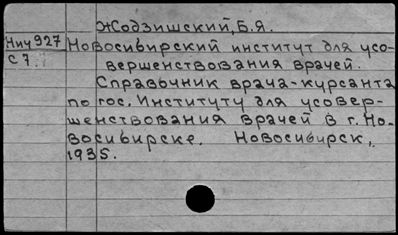 Жодзишский, Б.Я.
Нич927 Новосибирский институт для усо-
С7. вершенствования врачей.
Справочник врача-курсанта
по гос. Институту для усовер-
шенствования врачей в г. Но-
восибирске. Новосибирск,
1935.